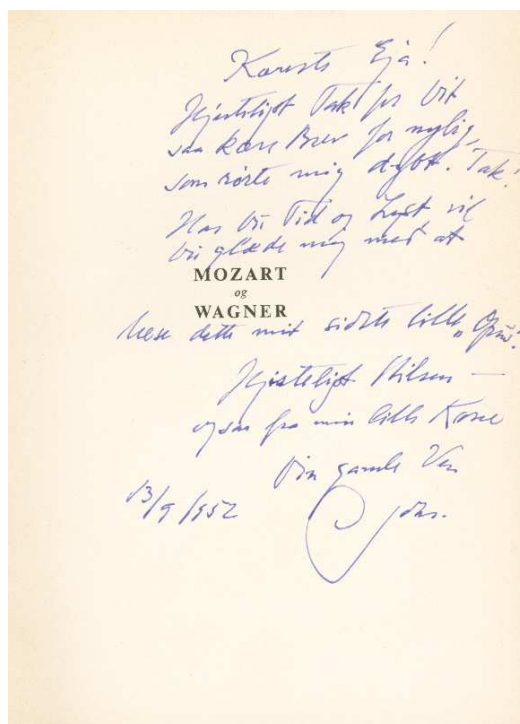 Kæreste Eja!
Hjerteligst Tak for Dit
saa kære Brev for nylig,
som rørte mig dybt. Tak!
Har Du Tid og Lyst vil
Du glæde mig med at
MOZART
og
WAGNER
læse dette mit sidste lille „Opus".
Hjerteligst Hilsen —
ogsaa fra min lille Kone
Din gamle Ven
Johs.
13/9 1952